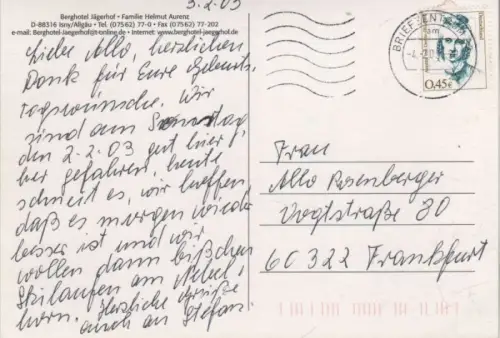 3.2.03
Berghotel Jägerhof • Familie Helmut Aurenz
D-88316 Isny/Allgäu • Tel. (07562) 77-0 • Fax (07562) 77-202
e-mail: Berghotel-Jaegerhof@t-online.de • Internet: www.berghotel-jaegerhof.de
Liebe Allo, herzlichen
Dank für Eure Geburts-
tagswünsche. Wir
sind am Sonntag,
den 2.2.03 gut hier,
her gefahren, heute
schneit es, wir hoffen,
daß es morgen wieder
besser ist und wir
wollen dann bißchen
Skilaufen am Nebel,
horn. Herzliche Grüße
auch an Stefan.
BRIEFZENT
0,45€
Frau
Allo Rosenberger
Vogtstraße 80
60322 Frankfurt